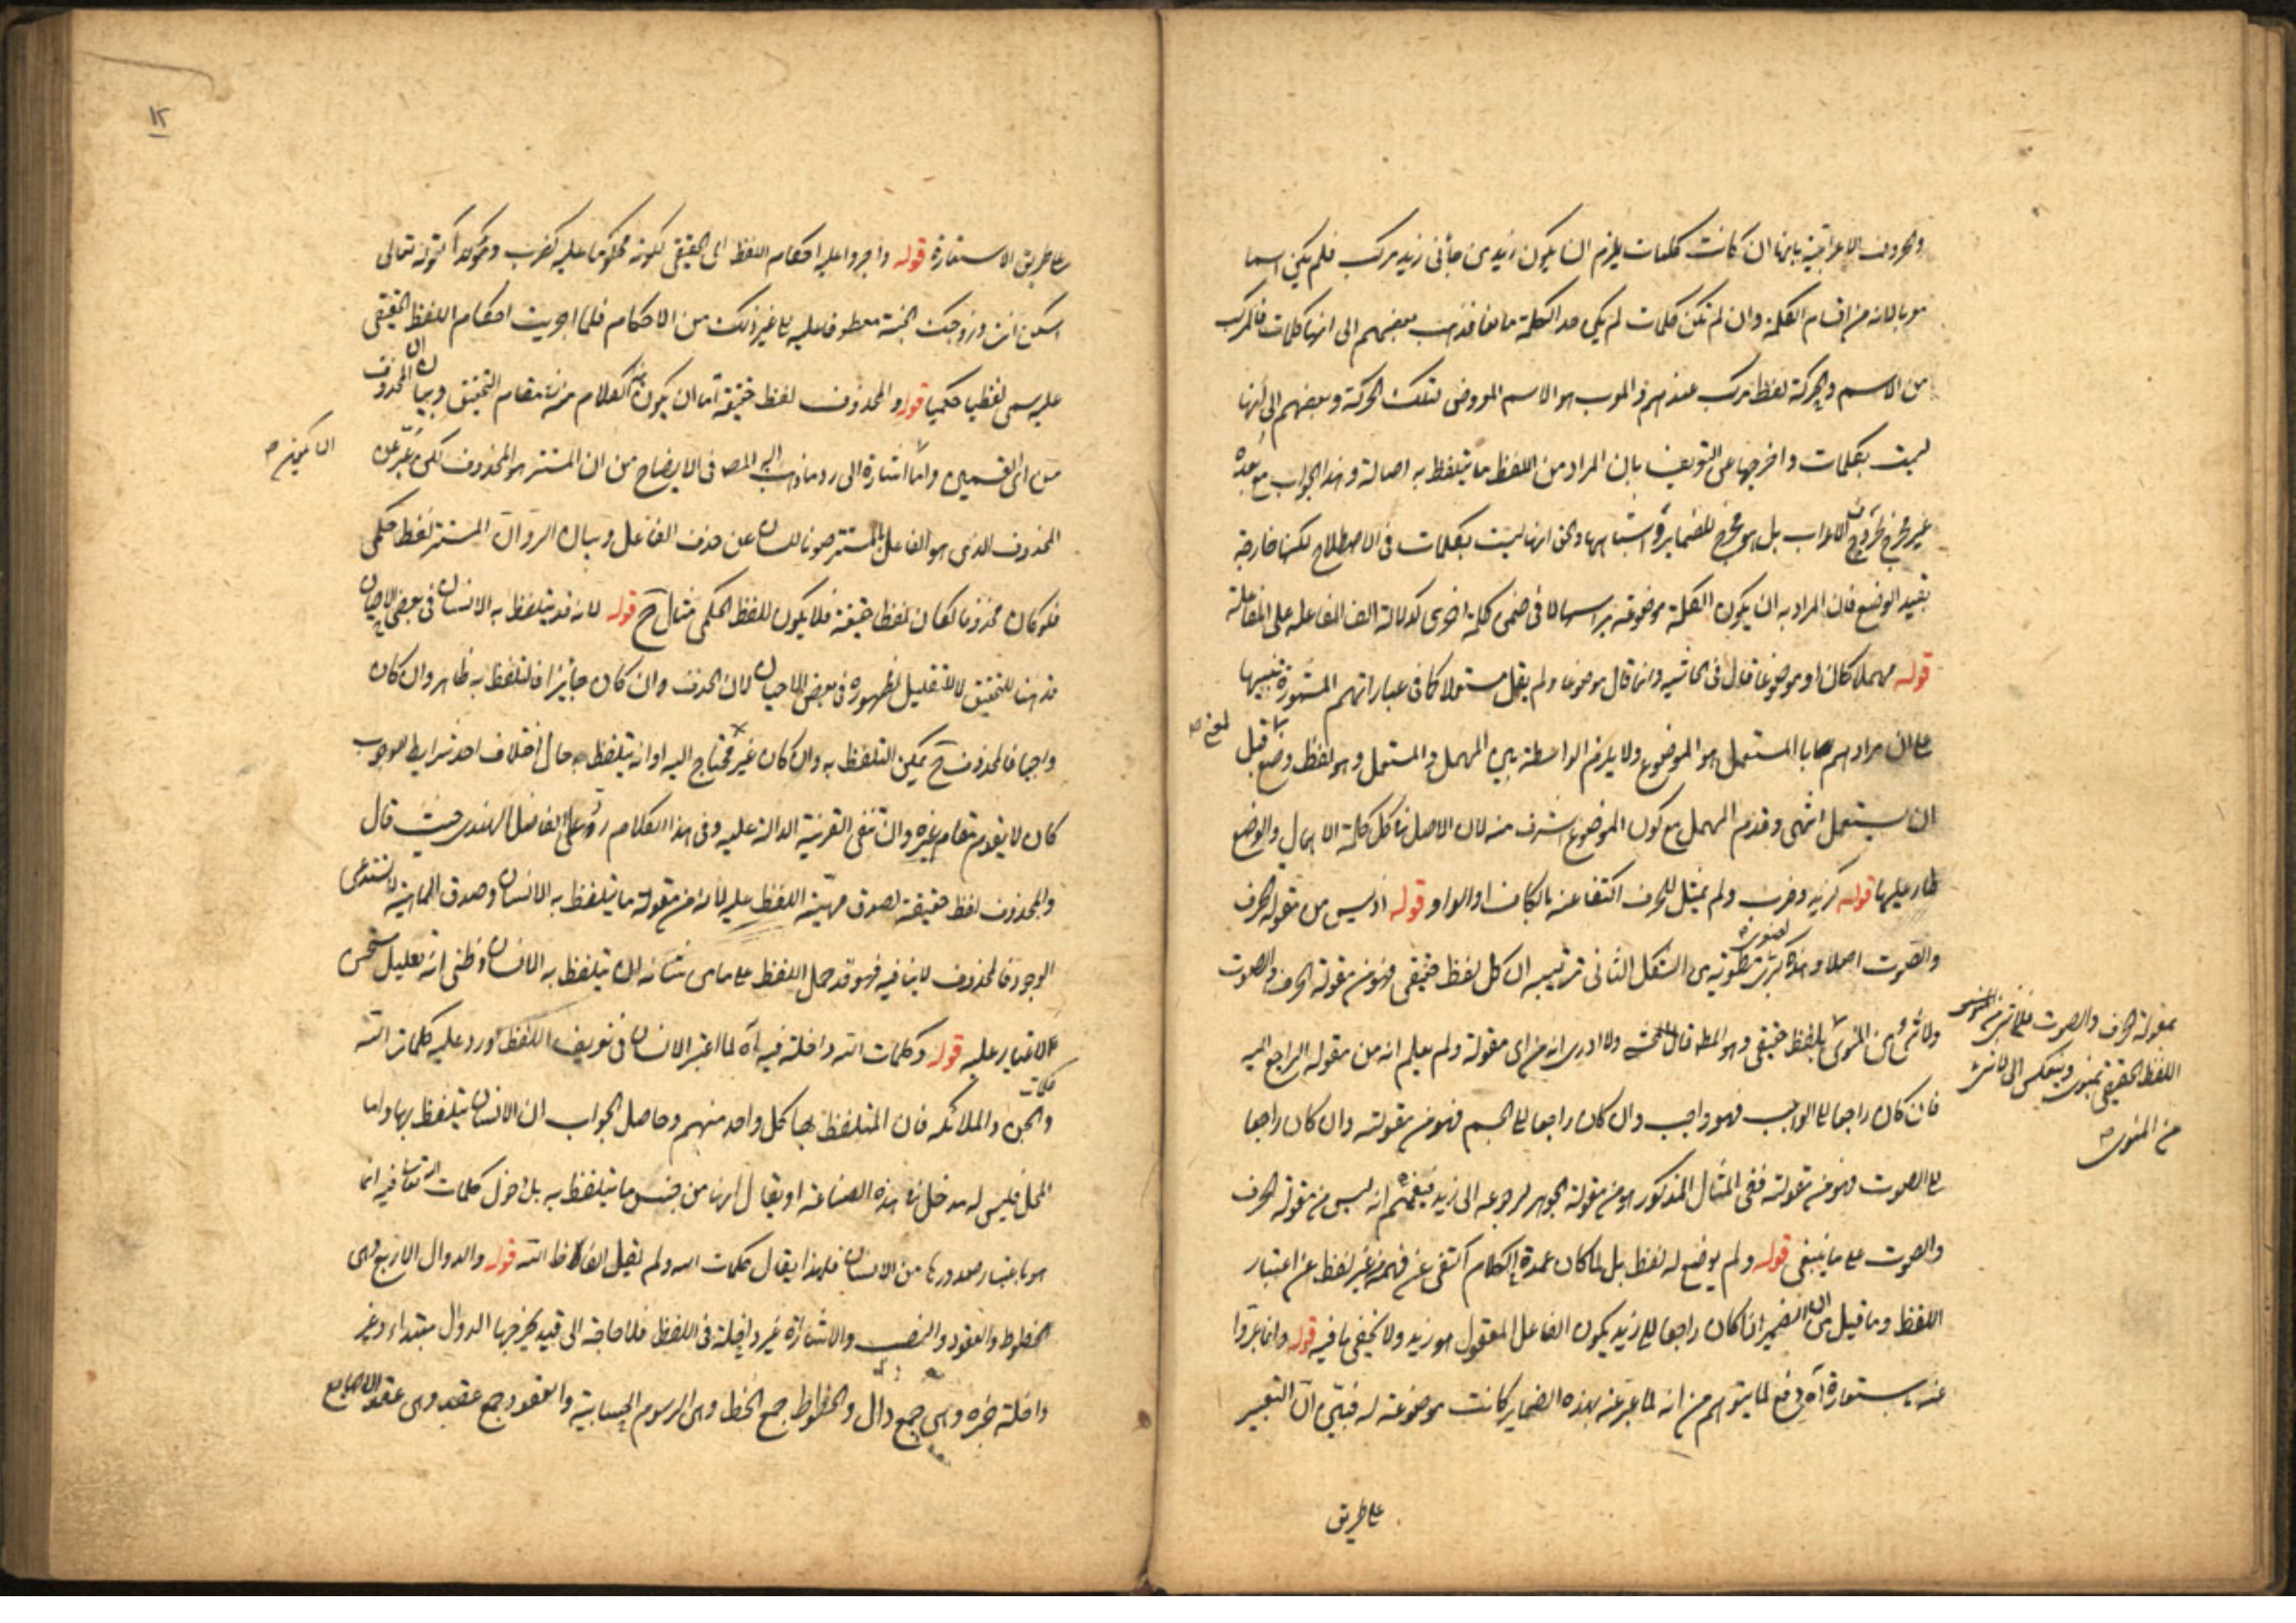 والحروف الاعرابية بانها ان كانت كلمات يلزم ان يكون زيد من جاءنى زيد مركب فلم يكن اسما
معربا لانه من اقسام الكلمة وان لم تكن كلمات لم يكن حد الكلمة مانعا فذهب بعضهم الى انها كلمات فالمركب
من الاسم والحركة لفظ مركب عندهم والمعرب هو الاسم المعروض لتلك الحركة وبعضهم الى انها
ليست بكلمات واخرجها عن التعريف بان المراد من اللفظ ما يتلفظ به اصالة وهذا الجواب مع بعده
غير مخرج لحروف الاعراب بل هو مخرج للضماير واشباهها والحق انها ليست بكلمات فى الاصطلاح لكنها خارجة
بقيد الوضع فان المراد به ان يكون الكلمة موضوعة براسها لا فى ضمن كلمة اخرى كدلالة الف الفاعل على الفاعلية
قوله مهملا كان او موضوعا قال فى الحاشية وانما قال موضوعا ولم يقل مستعملا كما فى عباراتهم المشهورة تنبيها
على ان مرادهم هنا بالمستعمل هو الموضوع ولا يلزم الواسطة بين المهمل والمستعمل وهو لفظ وضع قبل
ان يستعمل انتهى وقدم المهمل مع كون الموضوع اشرف منه لان الاصل فى كل كلمة الاهمال والوضع
طار عليها قوله كزيد وضرب ولم يمثل للحرف اكتفاء عنه بالكاف او الواو قوله اذ ليس من مقولة الحرف
والصوت اصلا وهذه كبرى مطوية من الشكل الثانى ترتيبه ان كل لفظ حقيقى فهو من مقولة الحرف والصوت
ولا شئ من المنوى بلفظ حقيقى وهو المط قال المحشى ولا ادرى انه من اى مقولة ولم يعلم انه من مقولة الراجع اليه
بمقولة الحرف والصوت فلا شئ من المنوى
اللفظ الحقيقى بمنوى وينعكس الى لا شئ
من المنوى صح
فان كان راجعا الى الواجب فهو واجب وان كان راجعا الى الجسم فهو من مقولته وان كان راجعا
الى الصوت فهو من مقولته ففى المثال المذكور هو من مقولة الجوهر لرجوعه الى زيد انه ليس من مقولة الحرف
والصوت على ما ينبغى قوله ولم يوضع له لفظ بل لما كان عمدة الكلام اكتفى عن فهمه بغير لفظ عن اعتبار
اللفظ وما قيل من ان الضمير اذا كان راجعا الى زيد يكون الفاعل المعقول هو زيد ولا يخفى ما فيه قوله وانما عبروا
عنه باستعارة آه دفع لما يتوهم من انه لما عبر عنه بهذه الضماير كانت موضوعة له فبين ان التعبير
على طريق
١٢
على طريق الاستعارة قوله واجروا عليه احكام اللفظ اى الحقيقى لكونه محكوما عليه كضرب ومؤكدا كقوله تعالى
اسكن انت وزوجك الجنة معطوفا عليه الى غير ذلك من الاحكام فلما اجريت احكام اللفظ الحقيقى
عليه سمى لفظيا حكميا قوله والمحذوف لفظ حقيقة اما ان يكون هذا الكلام منه تمام التحقيق وبيان ان المحذوف
من اى القسمين واما اشارة الى رد ما ذهب اليه المص فى الايضاح من ان المستتر هو المحذوف لكن عبر عن
المحذوف الذى هو الفاعل بالمستتر صونا للسان عن حذف الفاعل وبيان الرد ان المستتر لفظ حكمى
فلو كان محذوفا لكان لفظا حقيقة فلا يكون للفظ الحكمى مثال ح قوله لانه قد يتلفظ به الانسان فى بعض الاحيان
قد هنا للتحقيق لا للتقليل لظهوره فى بعض الاحيان لان الحذف وان كان جايزا فالتلفظ به ظاهر وان كان
واجبا فالمحذوف ح يمكن التلفظ به وان كان غير محتاج اليه او انه يتلفظ به حال اختلاف احد شرايط الوجوب
كان لا يقوم مقام غيره وان تنفى القرينة الدالة عليه وفى هذا الكلام رد على الفاضل الهندى حيث قال
والمحذوف لفظ حقيقة لصدق مهية اللفظ عليه لانه من مقولة ما يتلفظ به الانسان وصدق الماهية لا يستدعى
الوجود فالمحذوف لا ينافيه فهو قد حمل اللفظ على ما من شانه ان يتلفظ به الانسان وظنى انه تعليل يستحسن
الاعتبار عليه قوله وكلمات الله داخلة فيه آه لما اعتبر الانسان فى تعريف اللفظ اورد عليه كلمات الله
والجن والملائكة فان المتلفظ بها كل واحد منهم وحاصل الجواب ان الانسان يتلفظ بها واما
المحل فليس له مدخل فى هذه الصناعة او يقال انها من جنس ما يتلفظ به بل دخول كلمات الله تعالى فيه انما
هو باعتبار صدورها من الانسان فلهذا يقال كلمات الله ولم يقل الفاظ الله قوله والدوال الاربع وهى
الخطوط والعقود والنصب والاشارة غير داخلة فى اللفظ فلا حاجة الى قيد يخرجها الدوال مبتداء وغير
داخلة خبره وهى جمع دال والخطوط جمع الخط وهى الرسوم الحسابية والعقود جمع عقد وهى عقود الاصابع